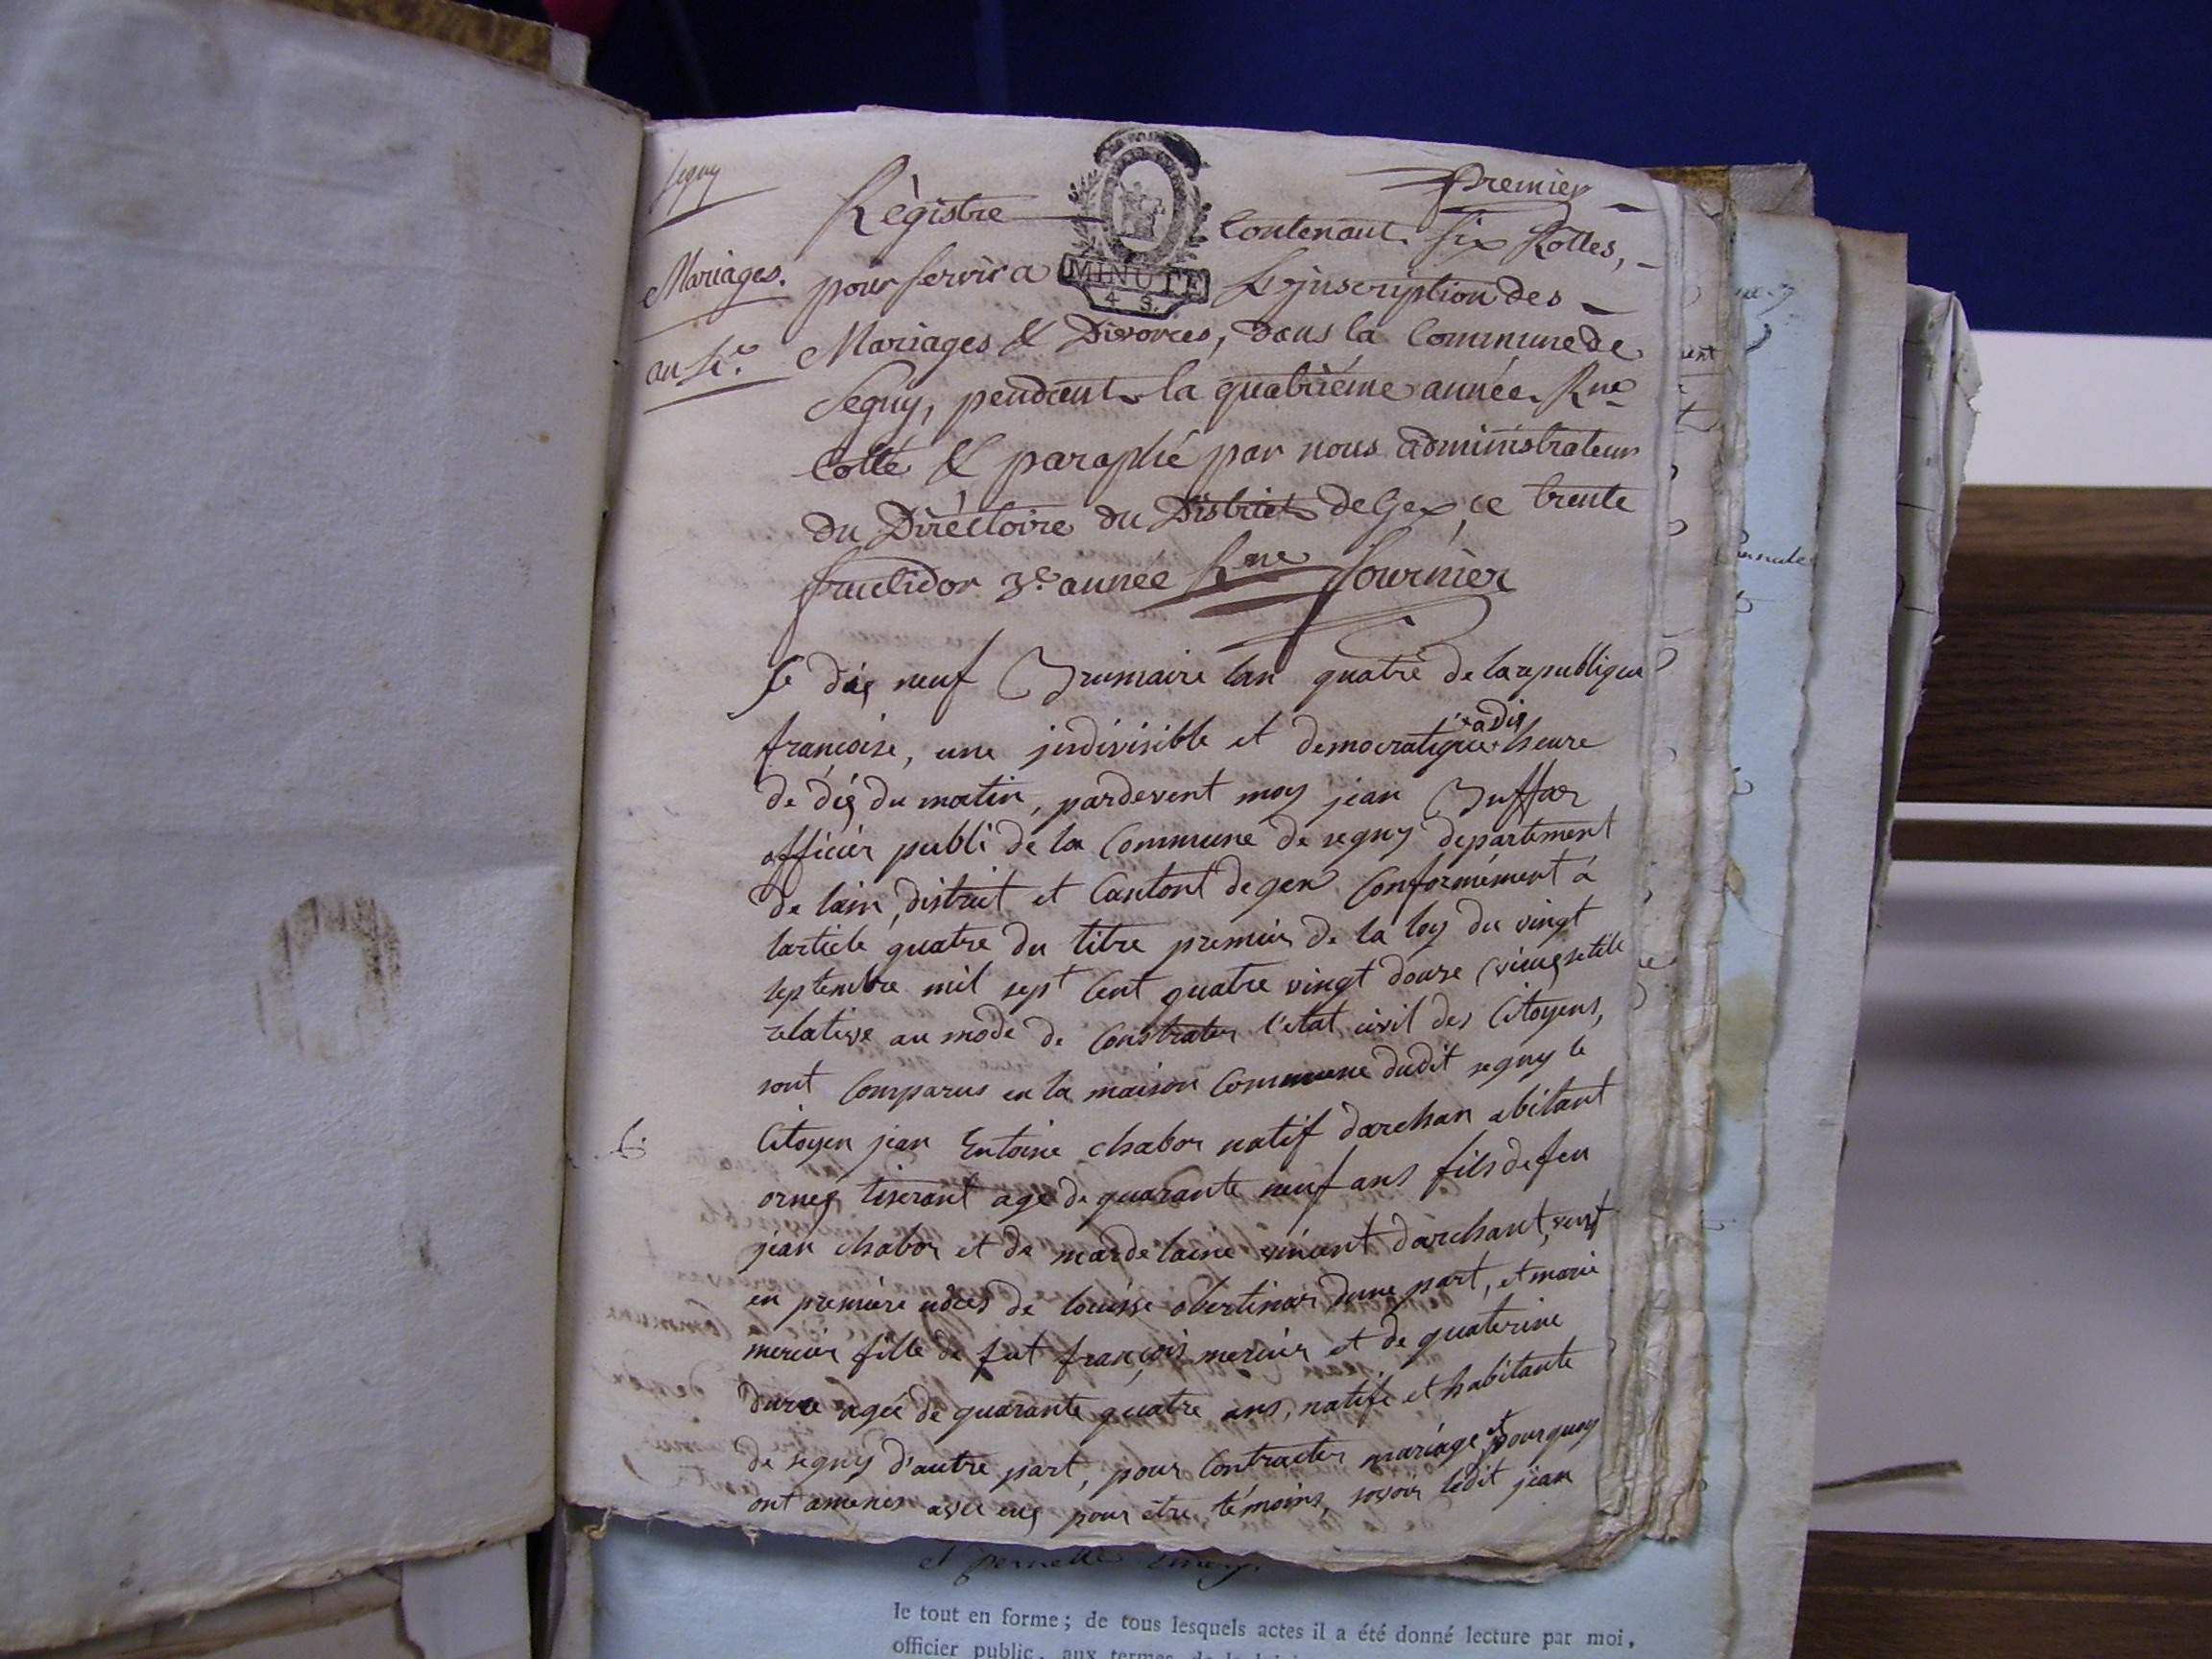 Segny
Premier
Mariages.
an 4.e
Règistre contenant six Rolles,
MINUTE
4 S.
pour servir a L'inscription des
Mariages & Divorces, dans la Commune de
Segny, pendant la quatriéme année Rne
Cotté & paraphé par nous administrateur
du Diréctoire du District de Gex, ce trente
fructidor 3.e année Rne Fournier
Le dix neuf Brumaire lan quatre de la republique
françoise, une indivisible et democratique × a dix heure
de dix du matin, pardevent moy jean Buffar
officier publi de la Commune de segny departement
de lain, district et Cantont de gex Conformément à
larticle quatre du titre premier de la loy du vingt
septembre mil sept Cent quatre vingt douse (vieux stile
relative au mode de Constrater l'etat civil des Citoyens,
sont Comparus en la maison Commune dudit segny le
Citoyen jean Entoine chabor natif darchan abitant
ornex tiserant age de quarante neuf ans fils de feu
jean chabor et de mardelaine vincent darchant, veuf
en premiere nôces de Louisse dune part, et marie
mercier fille de fut françois mercier et de quaterine
agée de quarante quatre ans, natife et habitante
de segny d'autre part, pour Contracter mariage et pourquoy
ont amenes avec eux pour être témoins, savoir ledit jean
et pernette
le tout en forme ; de tous lesquels actes il a été donné lecture par moi,
officier public, aux termes de la loi